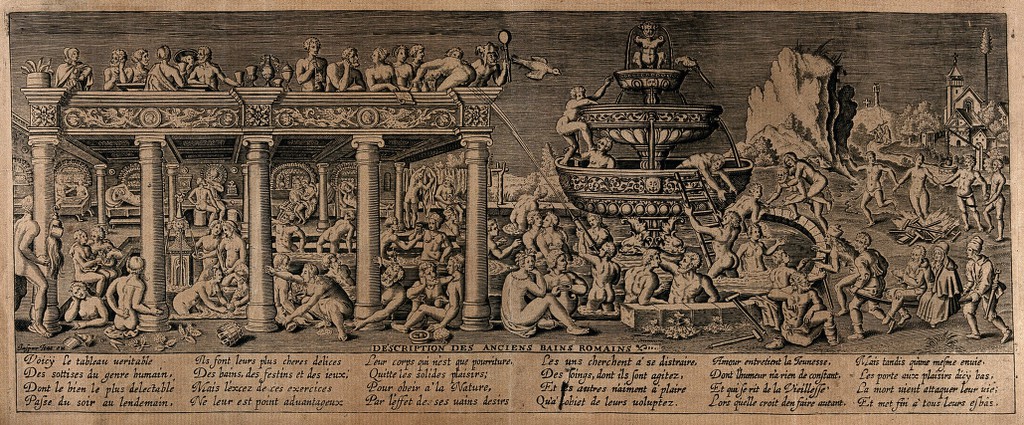 DESCRIPTION DES ANCIENS BAINS ROMAINS
Voicy le tableau veritable
Des sottises du genre humain,
Dont le bien le plus delectable
Passe du soir au lendemain.
Ils font leurs plus cheres délices
Des bains, des festins et des jeux,
Mais l'excez de ces exercices
Ne leur est point advantageux
Leur corps qui n'est que pourriture,
Quitte les solides plaisirs;
Pour obeir a la Nature,
Par l'effet de ses vains desirs
Les uns cherchent a se distraire,
Des soings, dont ils sont agitez,
Et les autres n'aiment a plaire
Qu'a l'obiet de leurs voluptez.
Amour entretient la Jeunesse,
Dont l'humeur n'a rien de constant,
Et qui se rit de la Vieillesse
Lors qu'elle croit d'en faire autant.
Mais tandis qu'une mesme envie
Les porte aux plaisirs d'icy bas,
La mort vient attaquer leur vie,
Et met fin a tous leurs esbas.